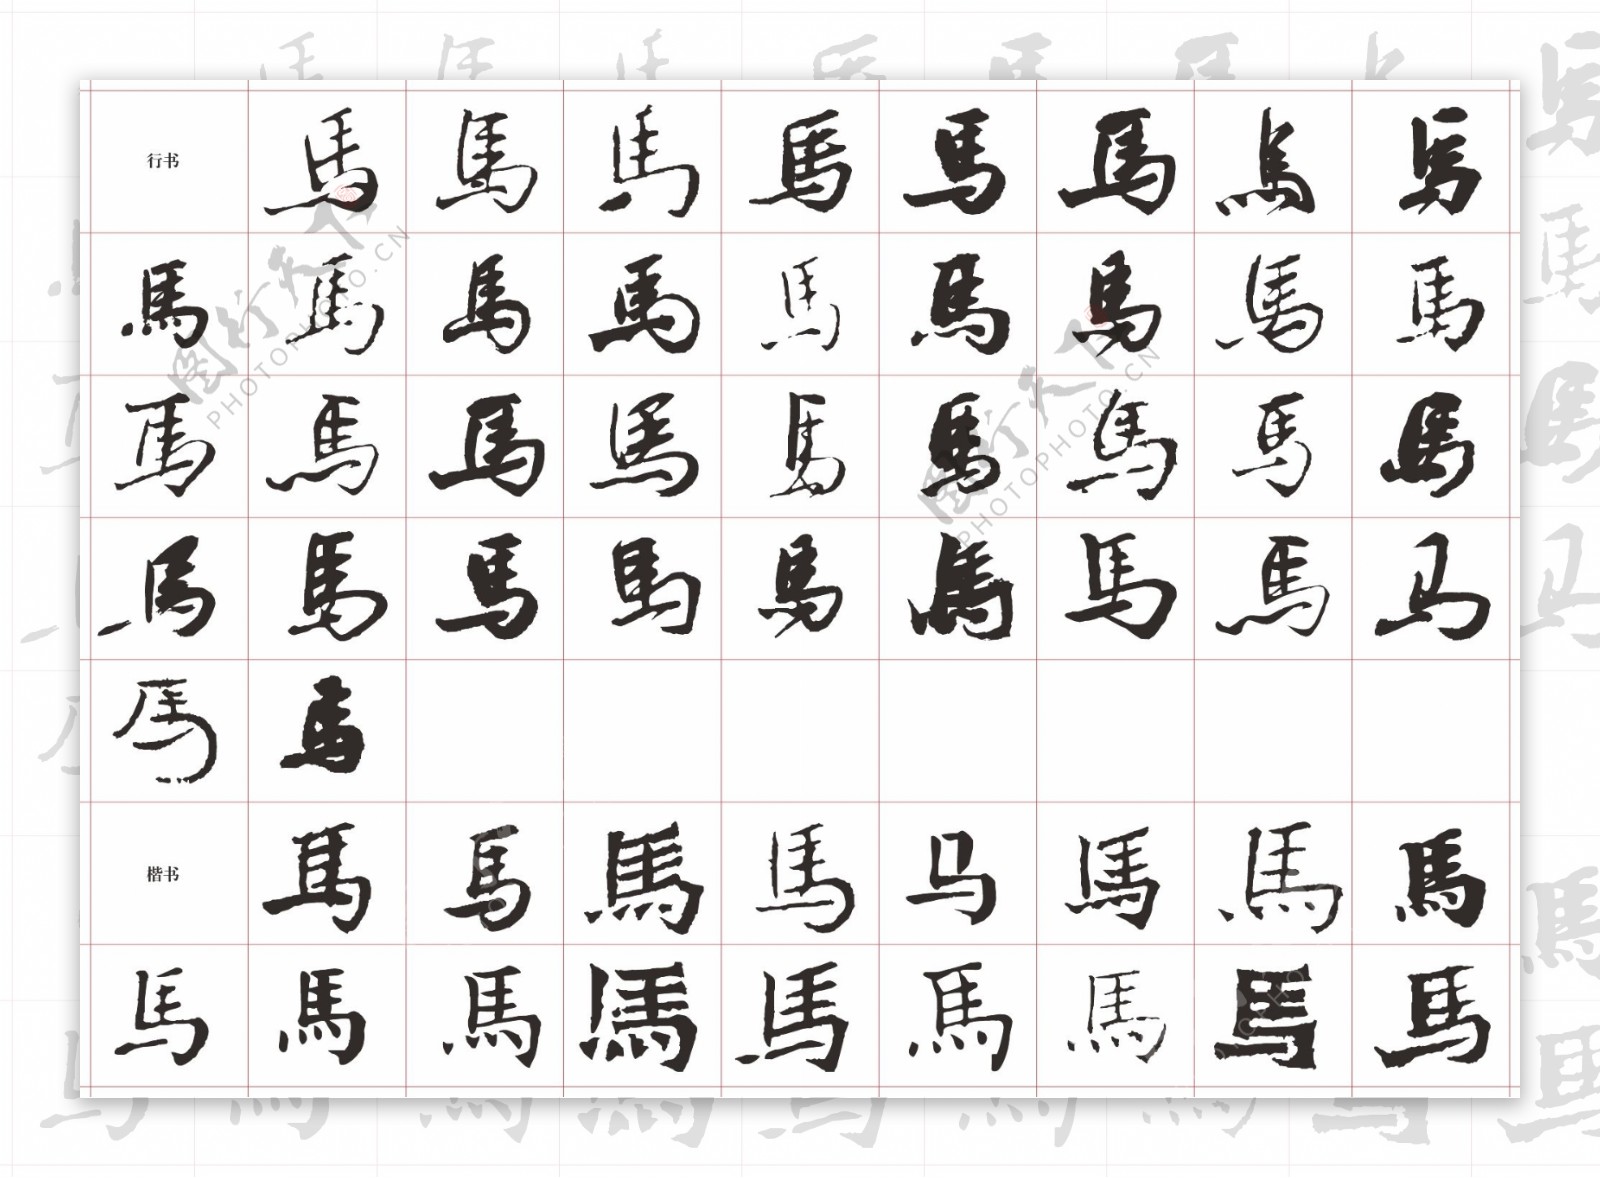 行书 馬 馬 馬 馬 馬 馬 馬 馬
馬 馬 馬 馬 馬 馬 馬 馬 馬
馬 馬 馬 馬 馬 馬 馬 馬 馬
馬 馬 馬 馬 馬 馬 馬 馬 马
馬 馬
楷书 馬 馬 馬 馬 马 馬 馬 馬
馬 馬 馬 馬 馬 馬 馬 馬 馬
图行天下
PHOTOPHOTO.CN
图行天下
PHOTOPHOTO.CN